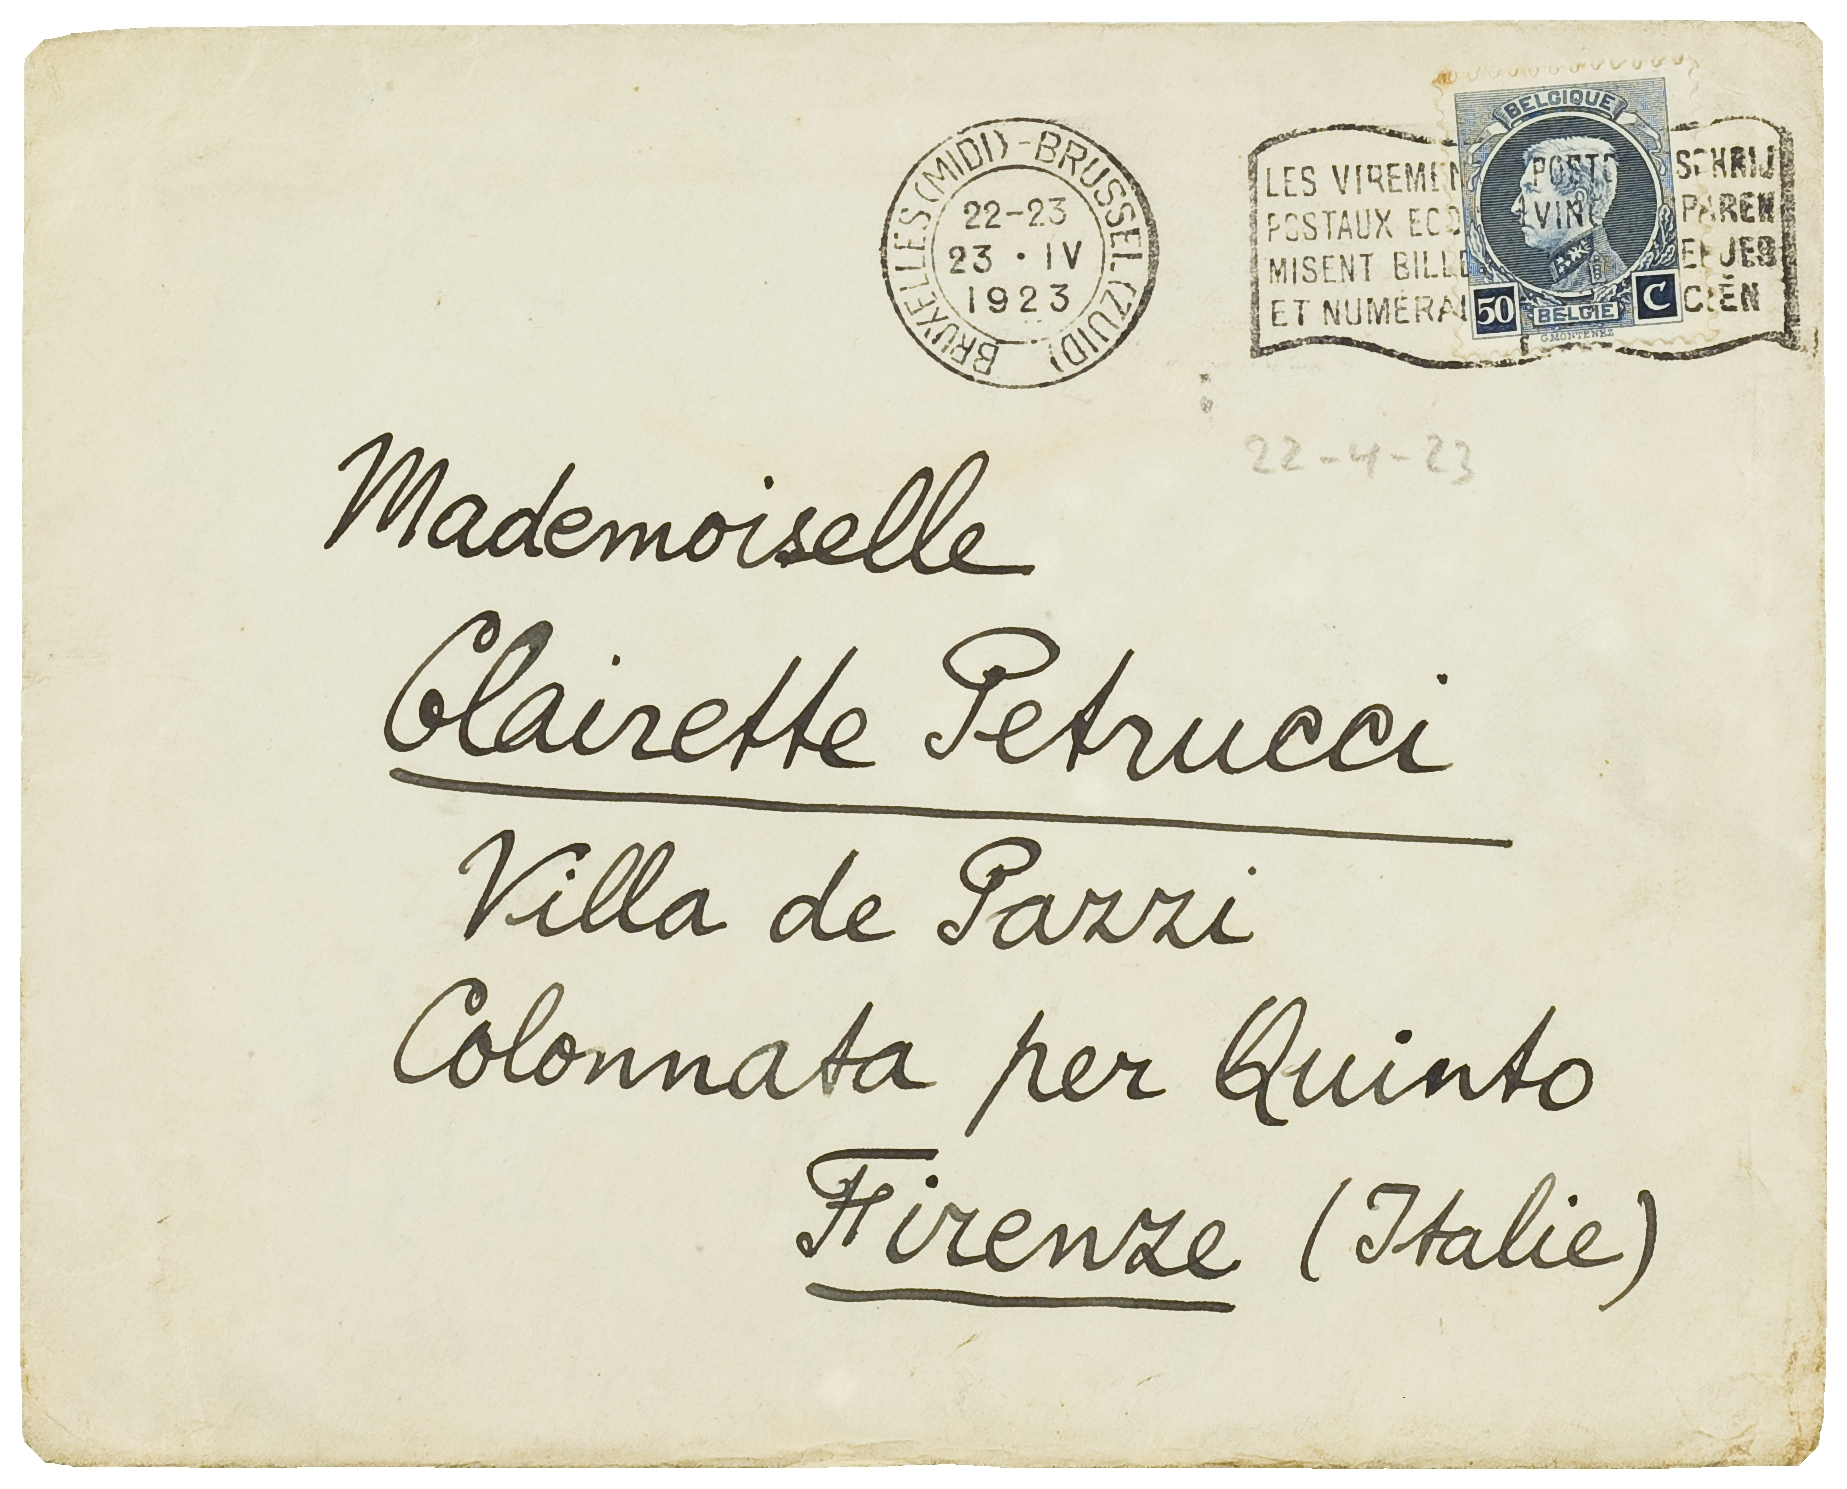 BRUXELLES (MIDI) - BRUSSEL (ZUID)
22-23
23 · IV
1923
LES VIREMEN
POSTAUX ECO
MISENT BILLE
ET NUMÉRAI
BELGIQUE
50 C
BELGIE
G. MONTENEZ
POSTC SCHRIJ
VIN PAREN
EFJES
CIËN
22-4-23
Mademoiselle
Clairette Petrucci
Villa de Pazzi
Colonnata per Quinto
Firenze (Italie)